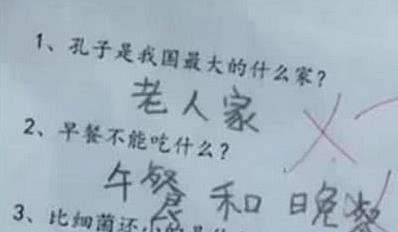 1、孔子是我国最大的什么家？
老人家
2、早餐不能吃什么？
午餐 和 晚餐
3、比细菌还小的是什